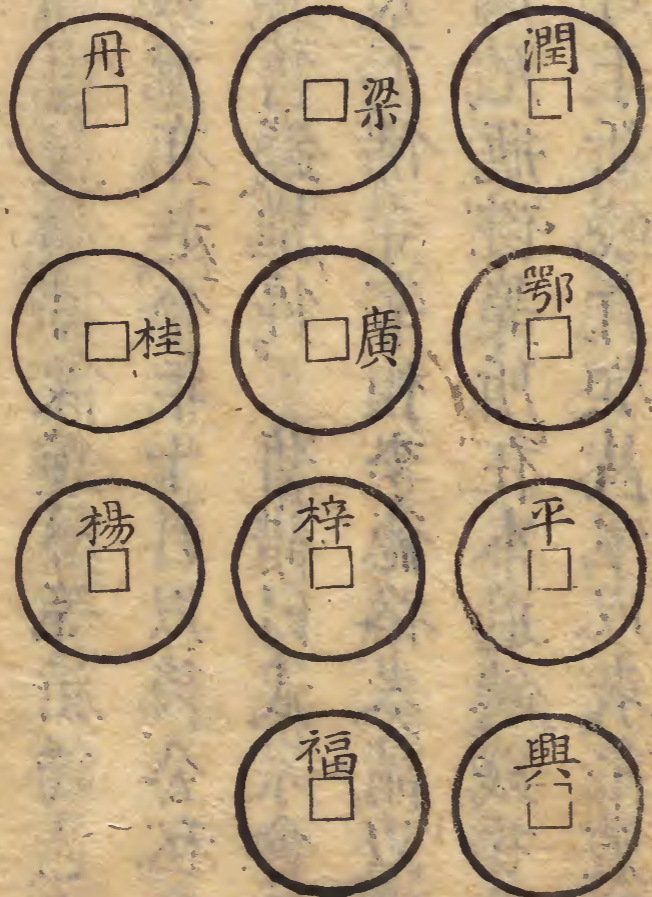 潤
鄂
平
興
梁
廣
梓
福
丹
桂
楊